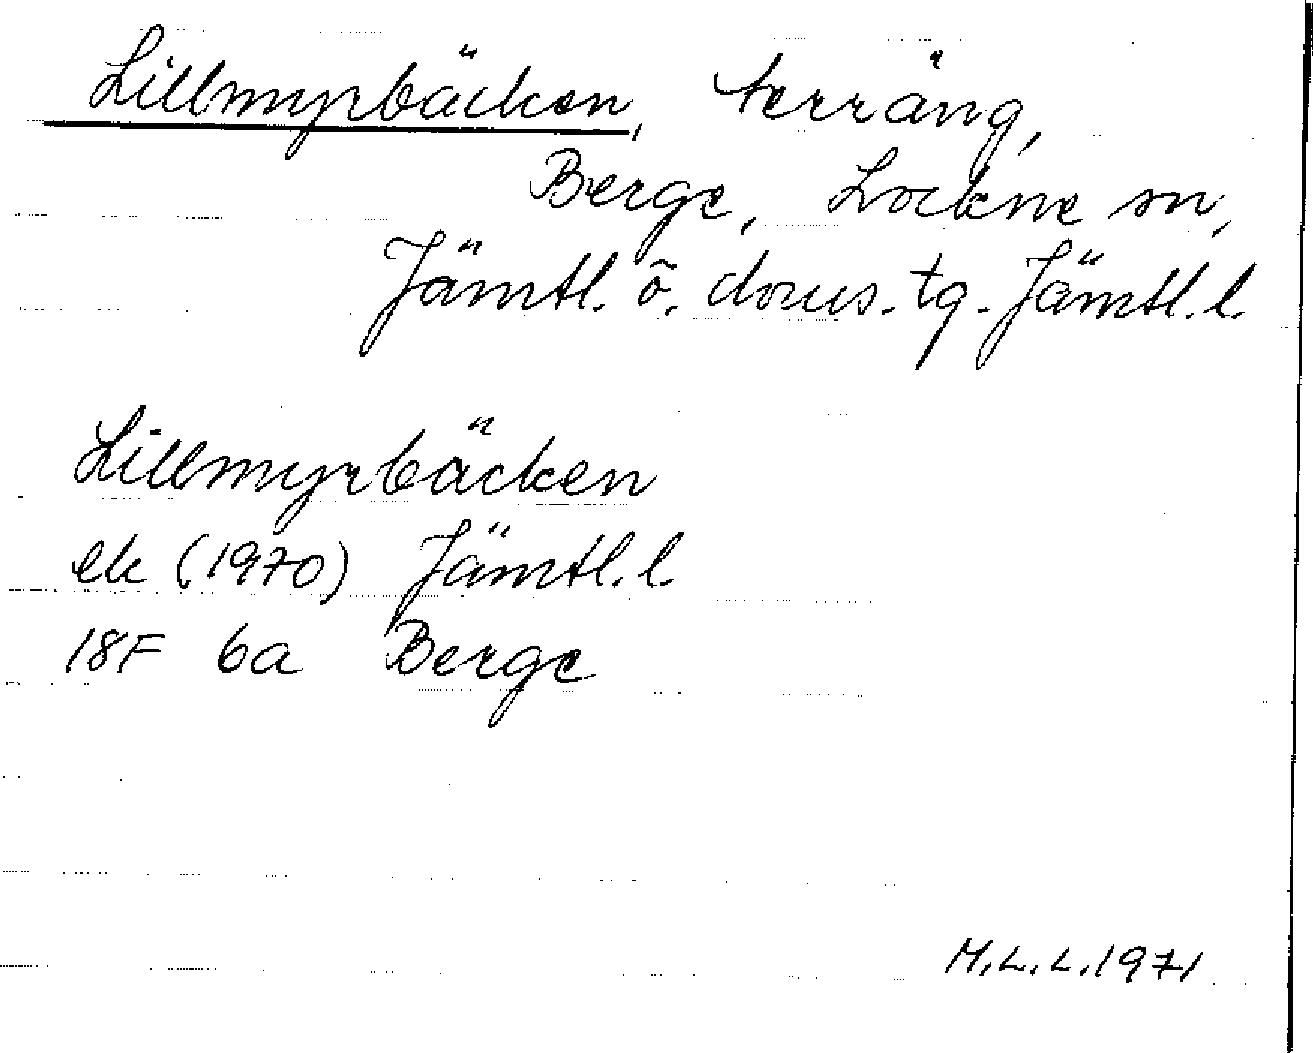 Lillmyrbäcken, terräng,
Berge, Lockne sn,
Jämtl. ö. doms. tg. Jämtl. l.
Lillmyrbäcken
ek (1970) Jämtl. l.
18F 6a Berge
M.L.L. 1971